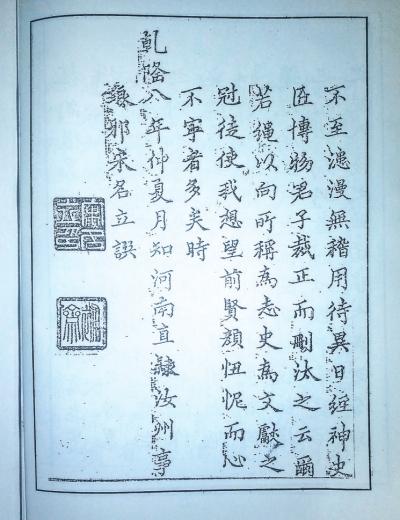 不至漶漫無稽用待異日經神史
匠博物君子裁正而刪汰之云爾
若繩以向所稱為志史為文獻之
冠徒使我想望前賢顏忸怩而心
不寧者多矣時
乾隆八年仲夏月知河南直隸汝州事
邪宋名立譔